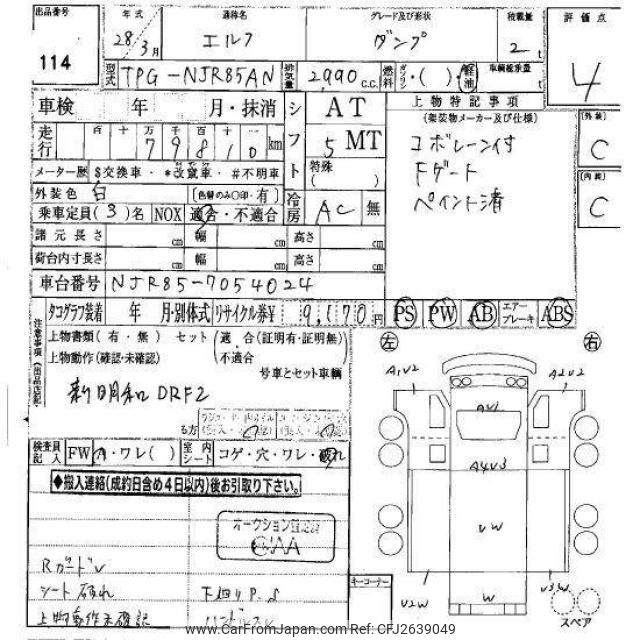 出品番号
114
年式 28/3月
通称名 エルフ
グレード及び形状 ダンプ
積載量 2 t
評価点 4
型式 TPG-NJR85AN
排気量 2,990 c.c.
燃料 ガソリン・( )・軽油
車輌総重量 t
車検 年 月・抹消
走行 百 十 万 千 百 十
79810 km
メーター歴 $交換車・*改竄車・#不明車
外装色 白 (色替のみ○印・有)
乗車定員(3)名 NOX 適合・不適合
シフト AT
5 MT
特殊( )
冷房 AC 無
上物特記事項
(架装物メーカー及び仕様)
コボレーン付
Fゲート
ペイント済
[外装] C
[内装] C
諸元長さ cm 幅 cm 高さ cm
荷台内寸長さ cm 幅 cm 高さ cm
車台番号 NJR85-7054024
タコグラフ装着 年 月・別体式 リサイクル券¥ 9,170円
PS PW AB エアーブレーキ ABS
注意事項(出品店記入)
上物書類(有・無) セット(適合(証明有・証明無)
上物動作(確認・未確認) 不適合
号車とセット車輌
新明和 DRF2
る方
検査員記入 FW A・ワレ( ) 室内シート コゲ・穴・ワレ・破れ
◆搬入連絡(成約日含め4日以内)後お引取り下さい。
オークション確認済
CAA
RガードV
シート破れ 下廻りP.S
上物動作未確認
左 右
A1V2 A2V2
AV1
A4V3
VW
V2W W V3W
キーコーナー
スペア
www.CarFromJapan.com Ref: CFJ2639049